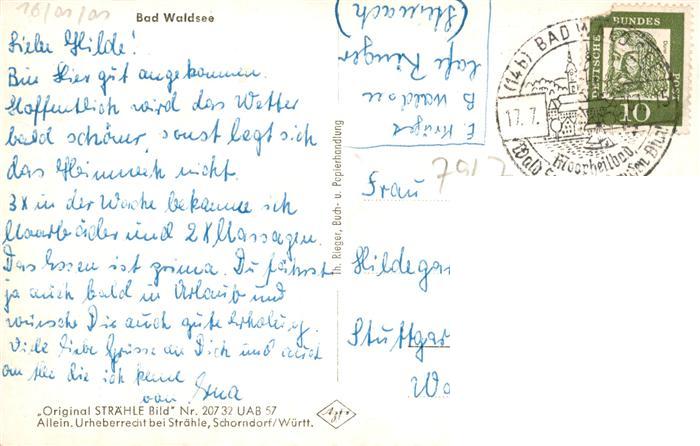 Bad Waldsee
Liebe Hilde!
Bin hier gut angekommen.
Hoffentlich wird das Wetter
bald schöner, sonst legt sich
das Heimweh nicht.
3x in der Woche bekomme ich
Moorbäder und 2x Massagen.
Das Essen ist prima. Du fährst
ja auch bald in Urlaub und
wünsche Dir auch gute Erholung.
Viele liebe Grüsse an Dich und auch
an alle die ich kenne
von Erna
„Original STRÄHLE Bild" Nr. 20732 UAB 57
Allein. Urheberrecht bei Strähle, Schorndorf/Württ.
Th. Rieger, Buch- u. Papierhandlung
Agfa
E. Krüger
B Waldsee
Cafe Rieger
(Steinach)
(14b) BAD
17.7.
Moorheilbad
DEUTSCHE BUNDESPOST
10
Frau
Hildegar
Stuttgar